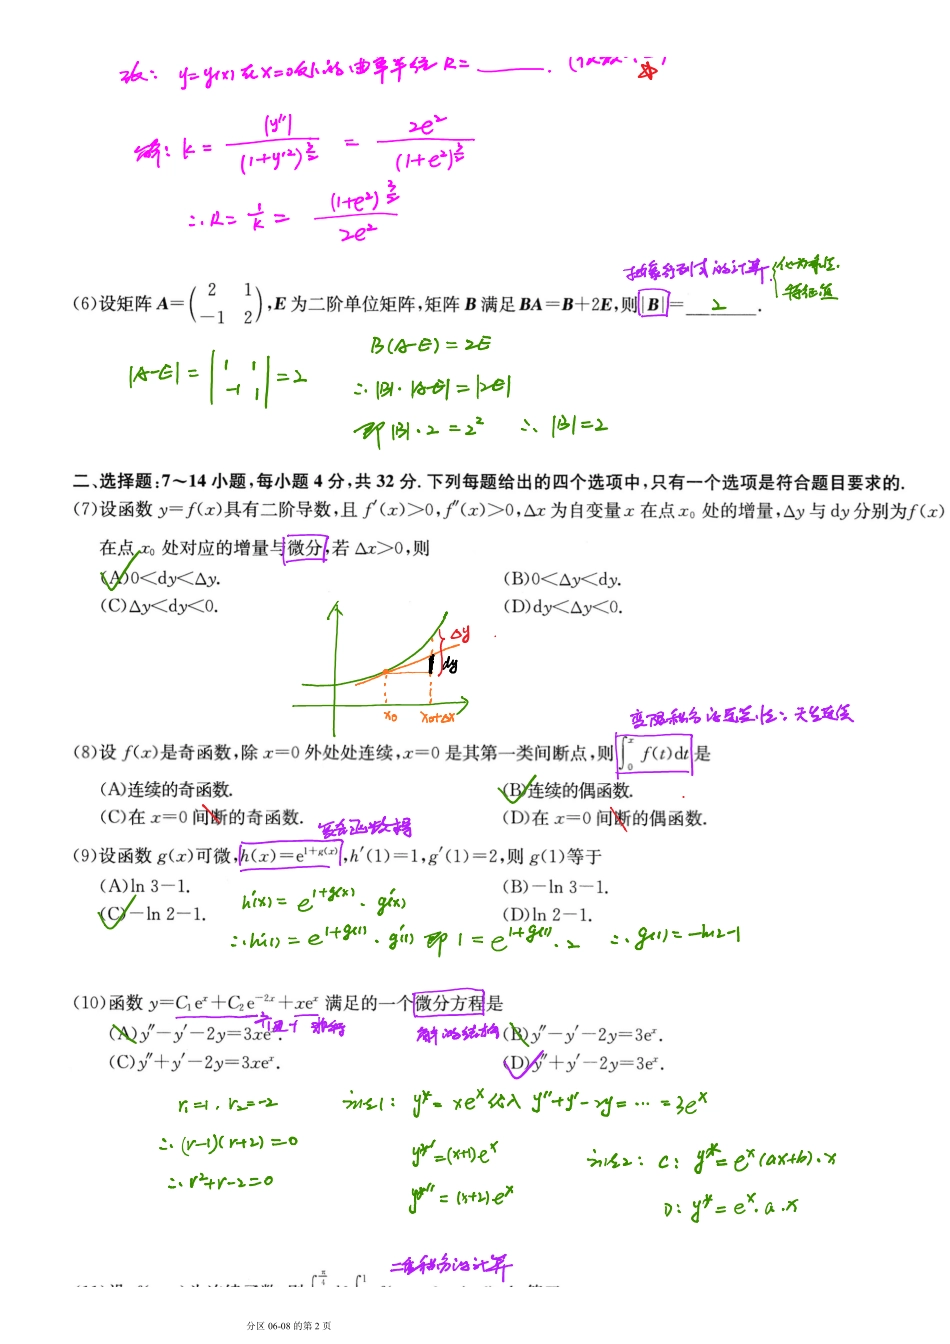 改: y=y(x)在x=0处的曲率半径 R=______.
解: k = |y''| / (1+y'²)^{3/2} = 2e² / (1+e²)^{3/2}
∴R= 1/k = (1+e²)^{3/2} / 2e²
抽象行列式的计算 { 化为乘积. 特征值
(6)设矩阵 A=( 2 1 ; −1 2 ),E 为二阶单位矩阵,矩阵 B 满足 BA=B+2E,则|B|= 2 .
B(A-E)=2E
|A-E| = | 1 1 ; -1 1 | =2 ∴|B|·|A-E|=|2E|
即|B|·2=2² ∴|B|=2
二、选择题:7～14 小题,每小题 4 分,共 32 分.下列每题给出的四个选项中,只有一个选项是符合题目要求的.
(7)设函数 y=f(x)具有二阶导数,且 f′(x)>0,f″(x)>0,Δx 为自变量 x 在点 x₀ 处的增量,Δy 与 dy 分别为f(x)
在点 x₀ 处对应的增量与微分,若 Δx>0,则
(A)0<dy<Δy. (B)0<Δy<dy.
(C)Δy<dy<0. (D)dy<Δy<0.
Δy
dy
x₀ x₀+Δx
(8)设 f(x)是奇函数,除 x=0 外处处连续,x=0 是其第一类间断点,则 ∫₀ˣ f(t)dt 是
(A)连续的奇函数. (B)连续的偶函数.
(C)在 x=0 间断的奇函数. (D)在 x=0 间断的偶函数.
复合函数求导
(9)设函数 g(x)可微,h(x)=e^{1+g(x)},h′(1)=1,g′(1)=2,则 g(1)等于
(A)ln 3−1. (B)−ln 3−1.
(C)−ln 2−1. (D)ln 2−1.
h'(x)= e^{1+g(x)}·g'(x)
∴h'(1)=e^{1+g(1)}·g'(1) 即 1=e^{1+g(1)}·2 ∴g(1)=-ln2-1
(10)函数 y=C₁eˣ+C₂e⁻²ˣ+xeˣ 满足的一个微分方程是
解的结构
(A)y″−y′−2y=3xeˣ. (B)y″−y′−2y=3eˣ.
(C)y″+y′−2y=3xeˣ. (D)y″+y′−2y=3eˣ.
r₁=1, r₂=-2 方法1: y*=xeˣ代入 y''+y'-2y=…=3eˣ
∴(r-1)(r+2)=0 y*'=(x+1)eˣ 方法2: C: y*=eˣ(ax+b)·x
∴r²+r-2=0 y*''=(x+2)eˣ D: y*=eˣ·a·x
二重积分的计算
分区 06-08 的第 2 页